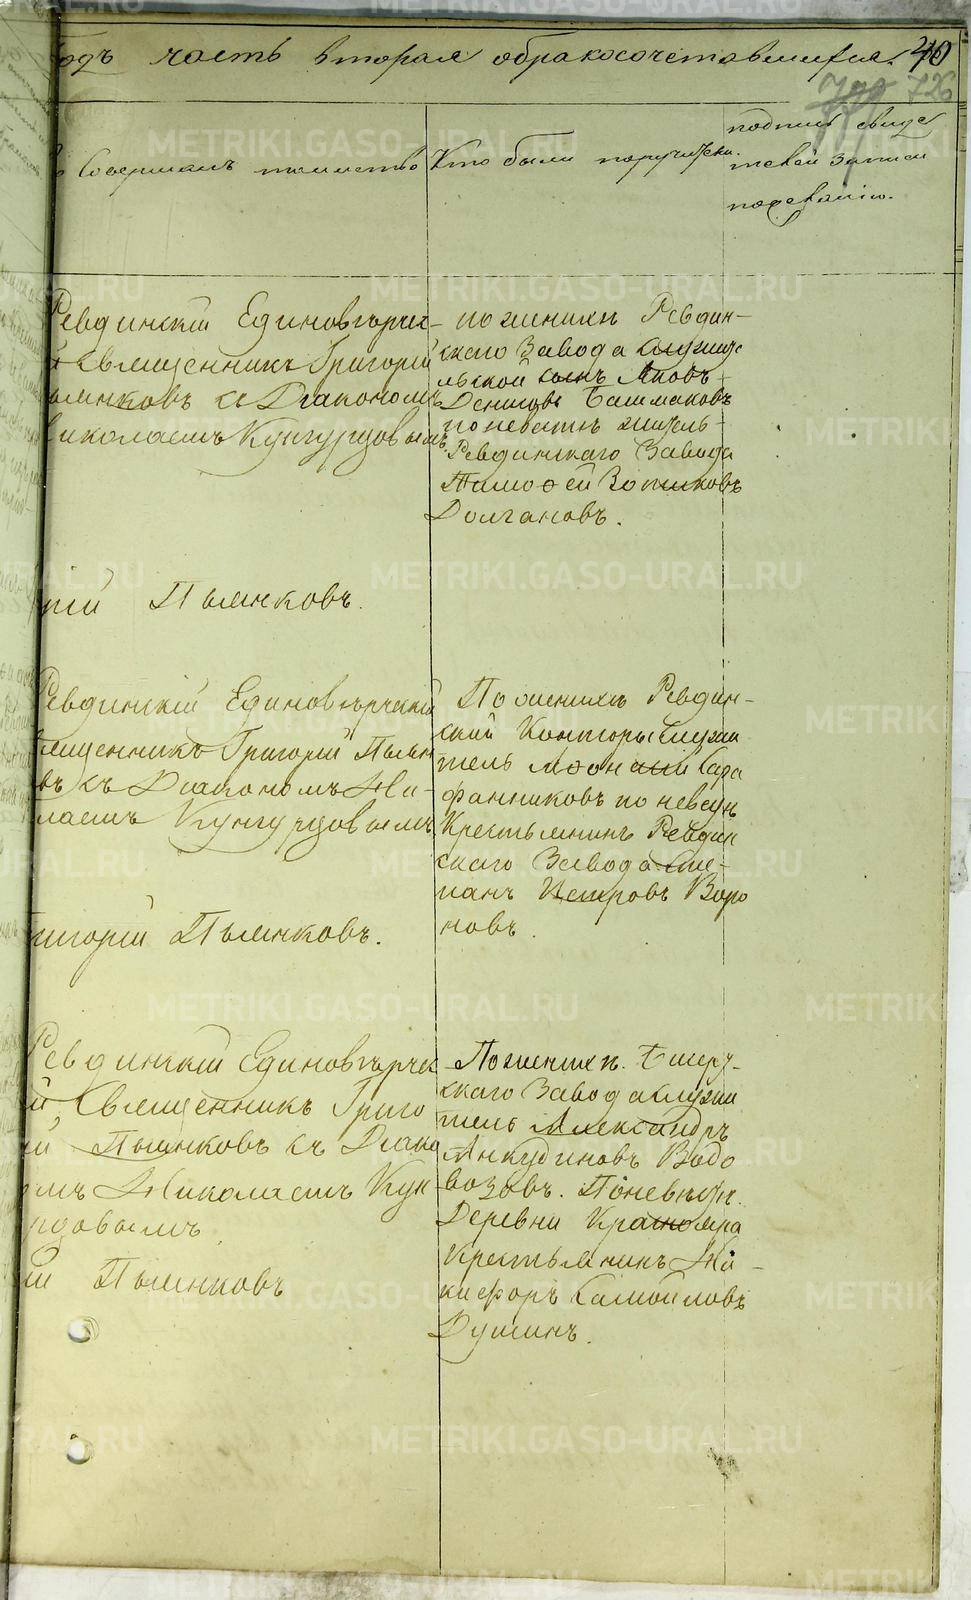 годъ часть вторая обракосочетавшихся. 40
726
Совершалъ таинство
Кто были поручители.
подпись свиде
телей записи
пожеланію.
Ревдинскій Единовѣрчес-
й Священникъ Григорій
ьянковъ съ Діакономъ
Николаемъ Кунгурцовымъ.
по женихѣ Ревдин-
скаго Завода служите
льской сынъ Яковъ
Денисовъ Башмаковъ
поневѣстѣ житель
Ревдинскаго Завода
Тимоѳей
Долгановъ.
рій Пьянковъ.
Ревдинскій Единовѣрческій
Священникъ Григорій Пьян
въ съ Діакономъ Ни-
лаемъ Кунгурцовымъ
По женихѣ Ревдин-
ской Конторы служи
тель Сара
фанниковъ по невѣстѣ
Крестьянинъ Ревдин
скаго Завода Сте-
панъ Петровъ Воро
новъ.
ригорій Пьянковъ.
Ревдинскій Единовѣрчес
й Священникъ Григо
ій Пьянковъ съ Діако
омъ Николаемъ Кун
рцовымъ.
По женихѣ. Бисер-
скаго Завода служи
тель Александръ
Анкудиновъ Водо
возовъ. По невѣстѣ.
Деревни Краснояра
Крестьянинъ Ни-
кифоръ Самойловъ
Душинъ.
ій Пьянковъ
METRIKI.GASO-URAL.RU